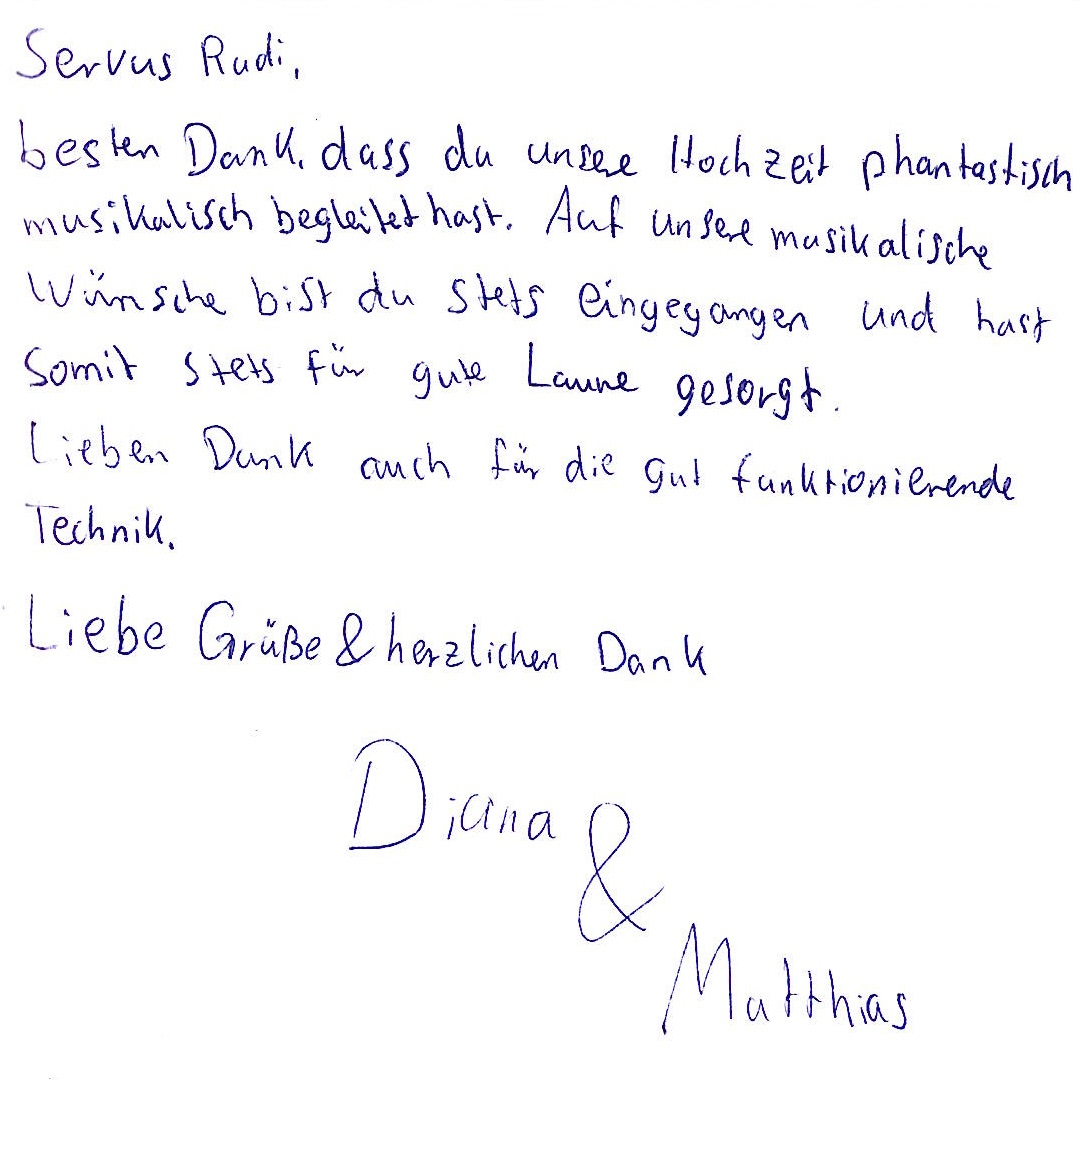 Servus Rudi,
besten Dank, dass du unsere Hochzeit phantastisch
musikalisch begleitet hast. Auf unsere musikalische
Wünsche bist du stets eingegangen und hast
somit stets für gute Laune gesorgt.
Lieben Dank auch für die gut funktionierende
Technik.
Liebe Grüße & herzlichen Dank
Diana
&
Matthias